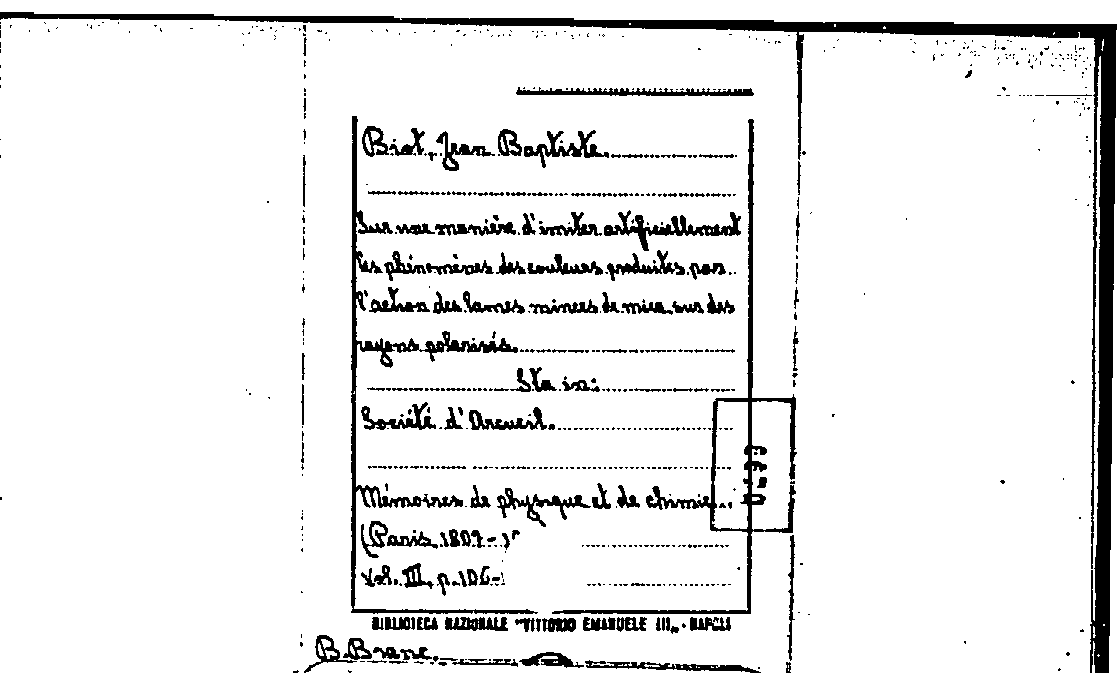 Biot, Jean Baptiste.
Sur une manière d'imiter artificiellement
les phénomènes des couleurs produites par
l'action des lames minces de mica sur des
rayons polarisés.
Sta in:
Société d'Arcueil.
Mémoires de physique et de chimie...
(Paris 1807-)
Vol. III, p. 106-
BIBLIOTECA NAZIONALE "VITTORIO EMANUELE III" - NAPOLI
B. Branc.